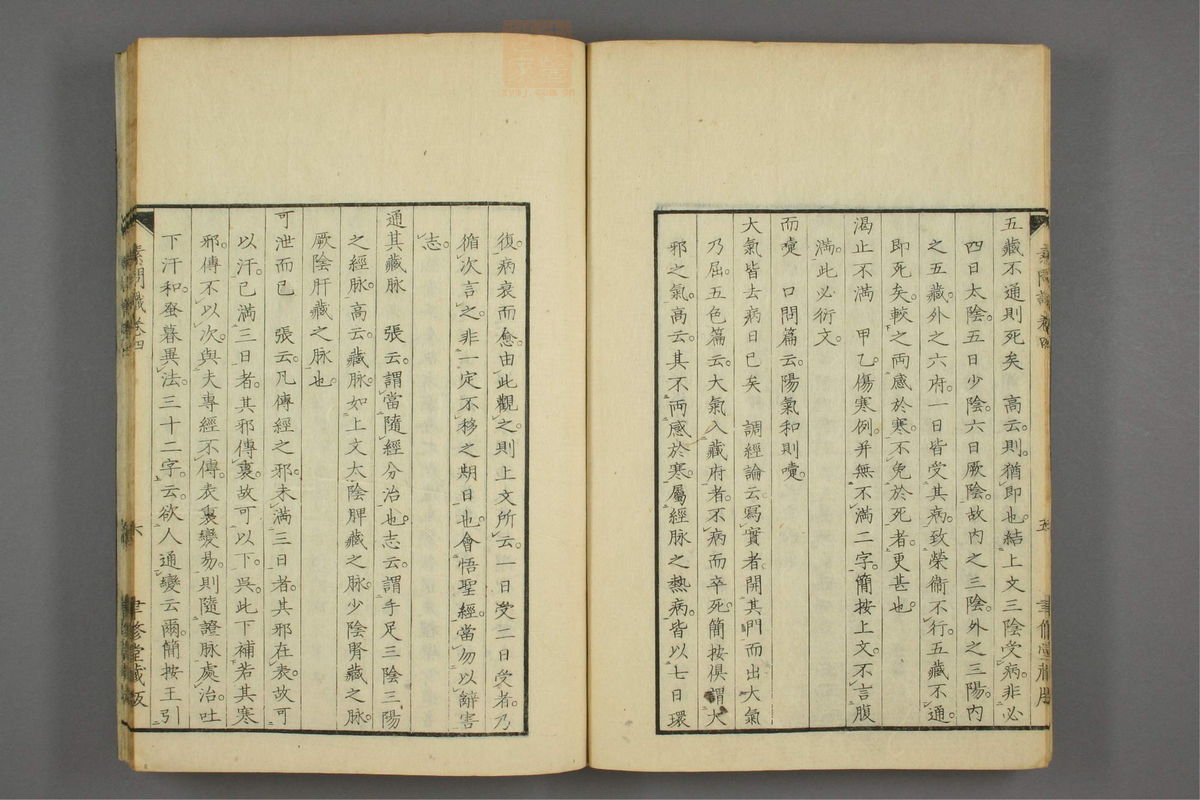 五藏不通則死矣 高云則猶即也結上文三陰受病非必
四日太陰五日少陰六日厥陰故內之三陰外之三陽內
之五藏外之六府一日皆受其病致榮衞不行五藏不通
即死矣較之兩感於寒不免於死者更甚也
渴止不滿 甲乙傷寒例并無不滿二字簡按上文不言腹
滿此必衍文
而嚏 口問篇云陽氣和則嚏
大氣皆去病日已矣 調經論云寫實者開其門而出大氣
乃屈五色篇云大氣入藏府者不病而卒死簡按俱謂大
邪之氣高云其不兩感於寒屬經脈之熱病皆以七日環
復病衰而愈由此觀之則上文所云一日受二日受者乃
循次言之非一定不移之期日也會悟聖經當勿以辭害
志
通其藏脈 張云謂當隨經分治也志云謂手足三陰三陽
之經脈高云藏脈如上文太陰脾藏之脈少陰腎藏之脈
厥陰肝藏之脈也
可泄而已 張云凡傳經之邪未滿三日者其邪在表故可
以汗已滿三日者其邪傳裏故可以下吳此下補若其寒
邪傳不以次與夫專經不傳表裏變易則隨證脈處治吐
下汗和蚤暮異法三十二字云欲人通變云爾簡按王引
素問識卷四
六
聿修堂藏版
五